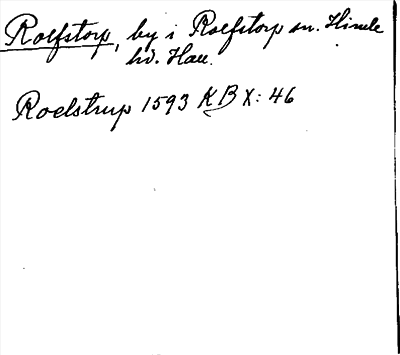 Rolfstorp, by i Rolfstorp sn. Himle
hd. Hall.
Roelstrup 1593 KB X: 46